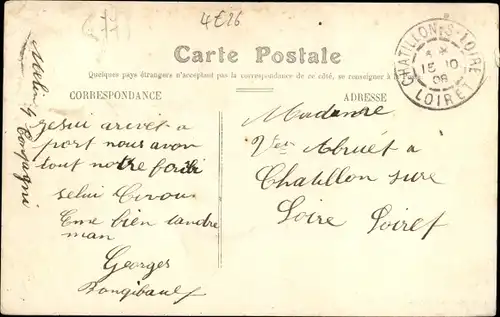 4E26
Carte Postale
Quelques pays étrangers n'acceptant pas la correspondance de ce côté, se renseigner à la Poste
CORRESPONDANCE
ADRESSE
CHATILLON-S-LOIRE
15 10
08
LOIRET
jesui arivét a
port nous avon
tout notre
selui
Eme bien tandre
man
Georges
Bongibault
Madame
Vev Abruét a
Chatillon sure
Loire Loiret